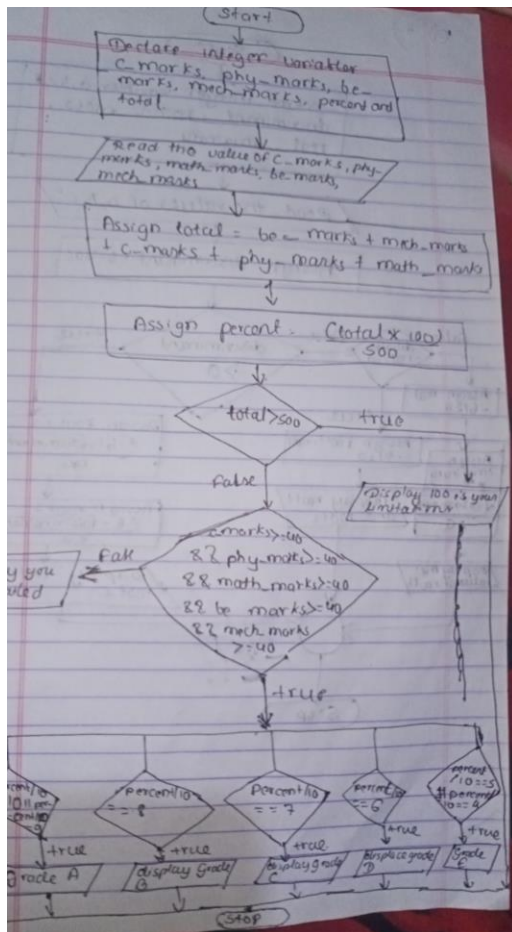 Start
Declare integer variables
c_marks, phy_marks, be_
marks, mech_marks, percent and
total
Read the value of c_marks, phy_
marks, math_marks, be_marks,
mech_marks
Assign total = be_ marks + mech_marks
+ c_marks + phy_marks + math_marks
Assign percent. (total x 100)
500
total>500
true
false
Display 100 is your
c_marks>=40
&& phy_marks>=40
&& math_marks>=40
&& be marks>=40
&& mech marks
>=40
y you
true
percent/10
== 8
percent/10
== 7
percent/10
==6
percent
/10==5
percent
10==4
true
true
true
true
true
grade A
display Grade
B
display grade
C
displace grade
D
Grade
E
STOP